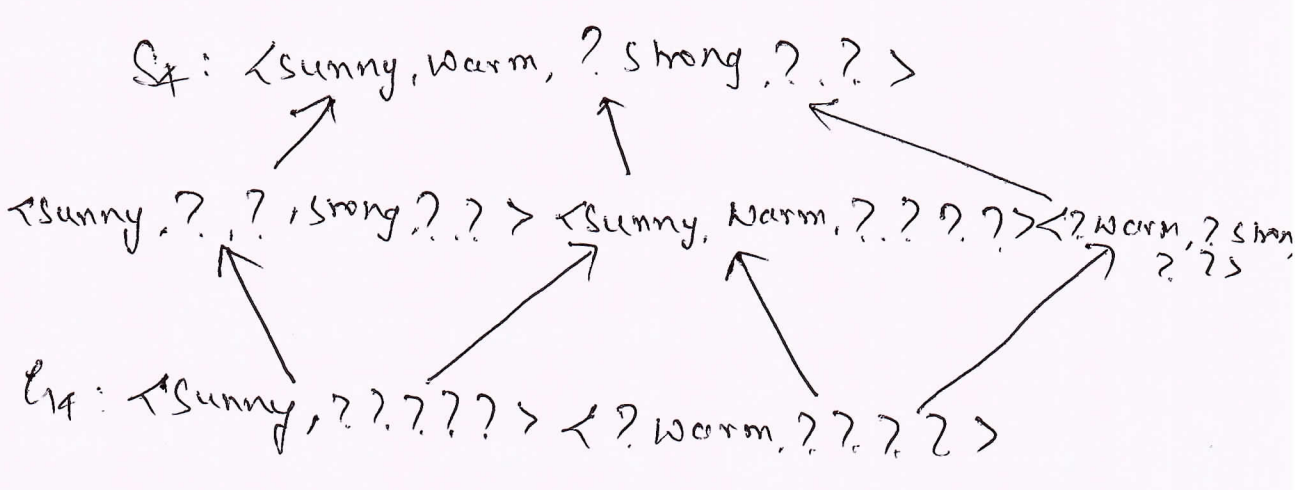 S4: <sunny, warm, ? strong, ?, ?>
<sunny, ?, ?, srong, ?, ?> <sunny, warm, ? ? ? ?> <? warm, ? stron,
? ?>
G4: <sunny, ? ? ? ? ?> <? warm, ? ? ? ?>